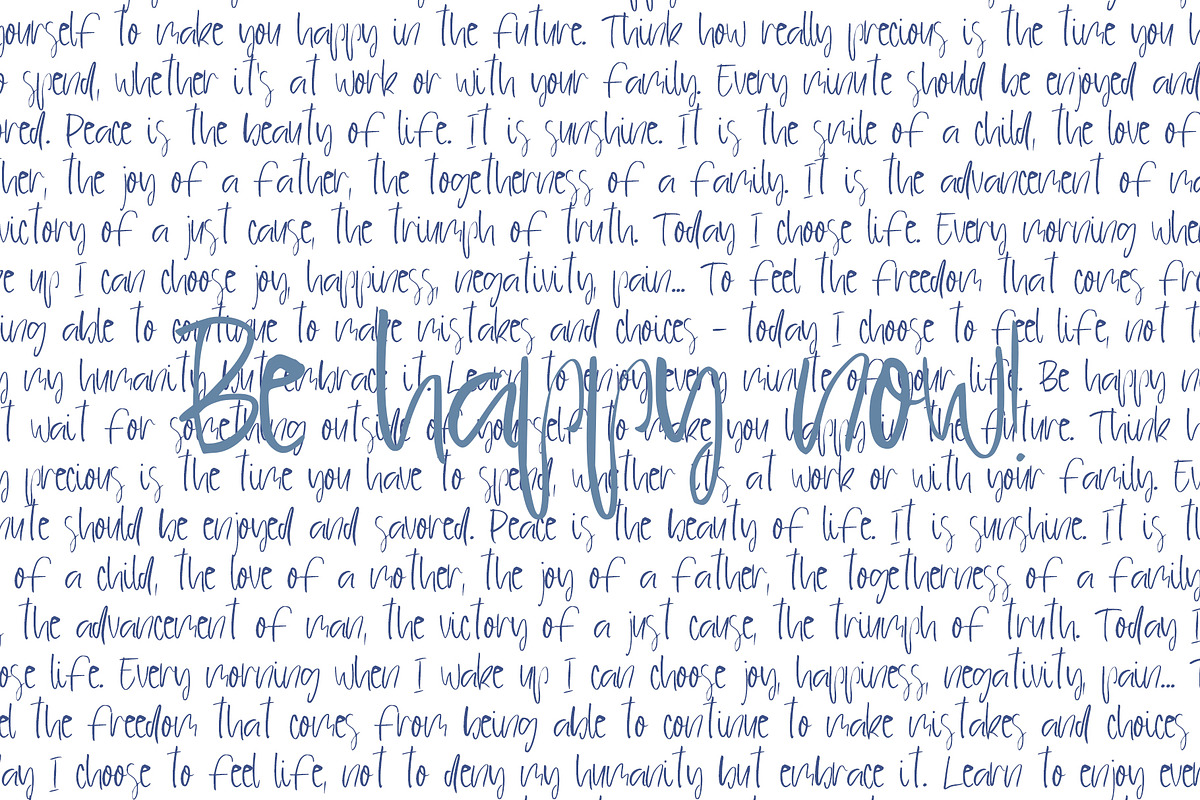 yourself to make you happy in the future. Think how really precious is the time you
spend, whether it's at work or with your family. Every minute should be enjoyed and
Peace is the beauty of life. It is sunshine. It is the smile of a child, the love of
the joy of a father, the togetherness of a family. It is the advancement of
victory of a just cause, the triumph of truth. Today I choose life. Every morning
up I can choose joy, happiness, negativity, pain... To feel the freedom that comes
able to continue to make mistakes and choices - today I choose to feel life, not
my humanity but embrace it. Learn to enjoy every minute of your life. Be happy
Be happy now!
wait for something outside of yourself to make you happy in the future. Think
precious is the time you have to spend, whether it's at work or with your family.
should be enjoyed and savored. Peace is the beauty of life. It is sunshine. It is
of a child, the love of a mother, the joy of a father, the togetherness of a family
, the advancement of man, the victory of a just cause, the triumph of truth. Today I
life. Every morning when I wake up I can choose joy, happiness, negativity, pain...
the freedom that comes from being able to continue to make mistakes and choices
I choose to feel life, not to deny my humanity but embrace it. Learn to enjoy